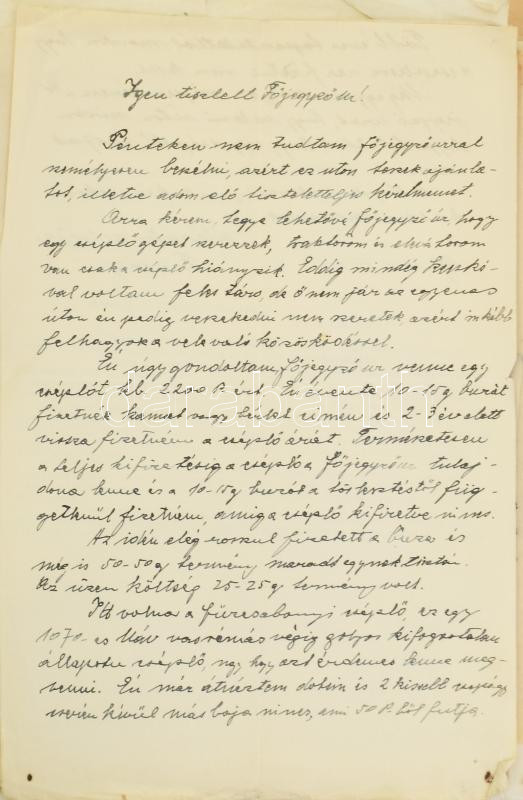 Igen tisztelt Főjegyző úr!
Pénteken nem tudtam főjegyző úrral
személyesen beszélni, azért ez uton teszek ajánla-
tot, illetve adom elő tiszteletteljes kérelmemet.
Arra kérem, tegye lehetővé főjegyző úr, hogy
egy cséplőgépet szerezzek, traktorom is elevátorom
van csak a cséplő hiányzik. Eddig mindég
val voltam feles társ, de ő nem jár az egyenes
úton én pedig veszekedni nem szeretek, azért inkább
felhagyok a vele való közösködéssel.
Én úgy gondoltam főjegyző úr, venne egy
cséplőt kb. 2200 P. ért. Én évente 10-15 q buzát
fizetnék kamat vagy címén és 2-3 év alatt
vissza fizetném a cséplő árát. Természetesen
a teljes kifizetésig a cséplő a főjegyző úr tulaj-
dona lenne és a 10-15 q buzát a törlesztéstől füg-
getlenül fizetném, amig a cséplő kifizetve nincs.
Az idén elég rosszul fizetett a buza és
még is 50-50 q termény maradt egynek tisztán.
Az üzem költség 25-25 q termény volt.
Itt volna a füzesabonyi cséplő, ez egy
1070-es Máv vasrámás végig golyós kifogástalan
állapotu cséplő, ugy hogy azt érdemes lenne meg-
venni. Én már átnéztem dobim és 2 kisebb
cserén kívül más baja nincs, ami 50 P.-ből futja.
darabanth